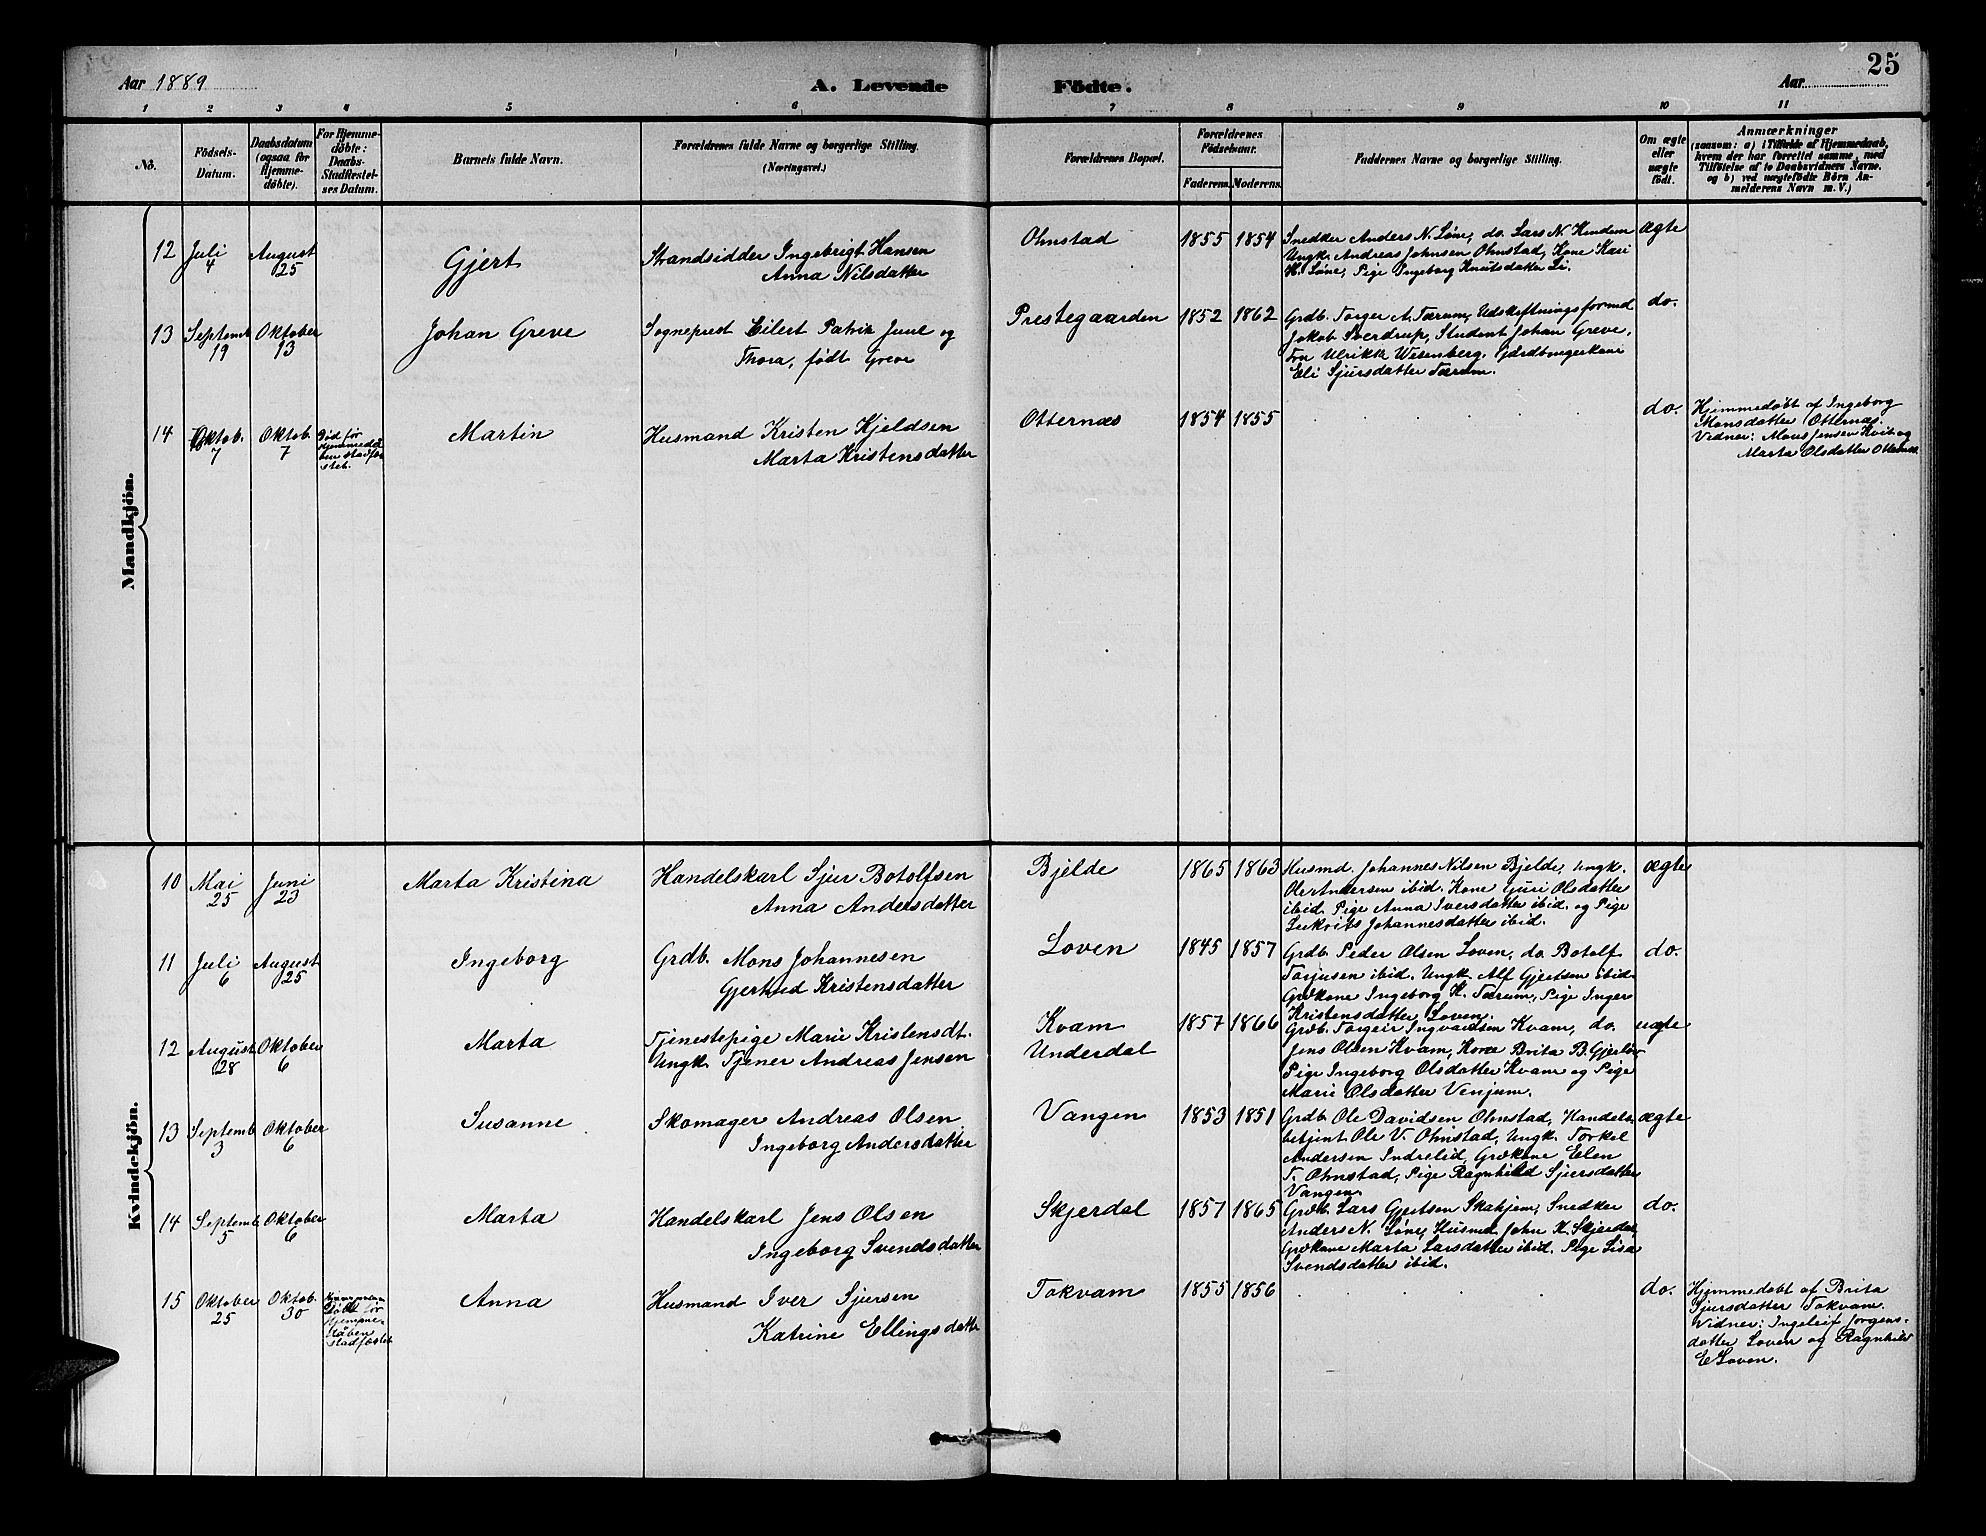 25
Aar 1889
A. Levende Födte.
Aar
1 2 3 4 5 6 7 8 9 10 11
No.
Födsels-Datum.
Daabsdatum (ogsaa for Hjemme-döbte).
For Hjemme-döbte: Daabs-Stadfæstel-ses Datum.
Barnets fulde Navn.
Forældrenes fulde Navne og borgerlige Stilling.
(Næringsvei.)
Forældrenes Bopæl.
Forældrenes Födselsaar.
Faderens. Moderens.
Faddernes Navne og borgerlige Stilling.
Om ægte eller uægte födt.
Anmærkninger
(saasom: a) i Tilfælde af Hjemmedaab,
hvem der har forrettet samme, med
Tilföielse af to Daabsvidners Navne.
og b) ved uægtefödte Börn An-
melderens Navn m. V.)
Mandkjön.
12 Juli 4 August 25 Gjert
Strandsidder Ingebrigt Hansen
Anna Nilsdatter
Ohnstad 1855 1854
Snedker Anders N. Løne, do. Lars N. Hindem
Ungk. Andreas Johnsen Ohnstad, Kone Kari
H. Løne, Pige Ingeborg Knutsdatter Li.
ægte
13 Septemb 19 Oktober 13 Johan Greve
Sogneprest Eilert Patrix Juul og
Thora, født Greve
Prestegaarden 1852 1862
Grdb. Torger A. Tærum, Udskiftningsformd
Jakob Sverdrup, Student Johan Greve,
Fru Ulrikk Wesenberg, Gardbrugerkone
Eli Sjursdatter Tærum.
do.
14 Oktob. 7 Oktob. 7
Død før
Hjemmedaa
ben stadfæ
stet.
Martin
Husmand Kristen Kjeldsen
Marta Kristensdatter
Otternæs 1854 1855
do.
Hjemmedøbt af Ingeborg
Monsdatter Otternæs.
Vidner: Mons Jensen Kvit og
Marta Olsdatter Otternæs.
Kvindekjön.
10 Mai 25 Juni 23 Marta Kristina
Handelskarl Sjur Botolfsen
Anna Andersdatter
Bjelde 1865 1863
Husmd. Johannes Nilsen Bjelde, Ungk.
Ole Andersen ibid. Kone Guri Olsdatter
ibid. Pige Anna Iversdatter ibid. og Pige
Johannesdatter ibid.
ægte
11 Juli 6 August 25 Ingeborg
Grdb. Mons Johannesen
Gjertrud Kristensdatter
Loven 1845 1857
Grdb. Peder Olsen Loven, do. Botolf
Torjusen ibid. Ungk. Alf Gjertsen ibid.
Grdkone Ingeborg K. Tærum, Pige Inger
Kristensdatter Loven.
do.
12 August 28 Oktober 6 Marta
Tjenestepige Marie Kristensdt.
Ungk. Tjener Andreas Jensen
Kvam
Underdal
1857 1866
Grdb. Torgeir Ingvardsen Kvam, do.
Jens Olsen Kvam, Kone Brita B. Gjerløv
Pige Ingeborg Olsdatter Kvam og Pige
Marie Olsdatter Venjum.
uægte
13 Septemb 3 Oktober 6 Susanne
Skomager Andreas Olsen
Ingeborg Andersdatter
Vangen 1853 1851
Grdb. Ole Davidsen Ohnstad, Handels
betjent Ole V. Ohnstad, Ungk. Torkel
Andersen Indrelid, Grdkone Elen
T. Ohnstad, Pige Ragnhild Sjursdatter
Vangen.
ægte
14 Septemb. 5 Oktober 6 Marta
Handelskarl Jens Olsen
Ingeborg Svendsdatter
Skjerdal 1857 1865
Grdb. Lars Gjertsen Skahjem, Snedker
Anders N. Løne, Husmd. John K. Skjerdal,
Grdkone Marta Larsdatter ibid. Pige Lisa
Svendsdatter ibid.
do.
15 Oktober 25 Oktob. 30
før
Hjemme-
daaben
stadfæstet
Anna
Husmand Iver Sjursen
Katrine Ellingsdatter
Tokvam 1855 1856
do.
Hjemmedøbt af Brita
Sjursdatter Tokvam.
Vidner: Ingeleif Jørgens-
datter Loven og Ragnhild
E Loven.